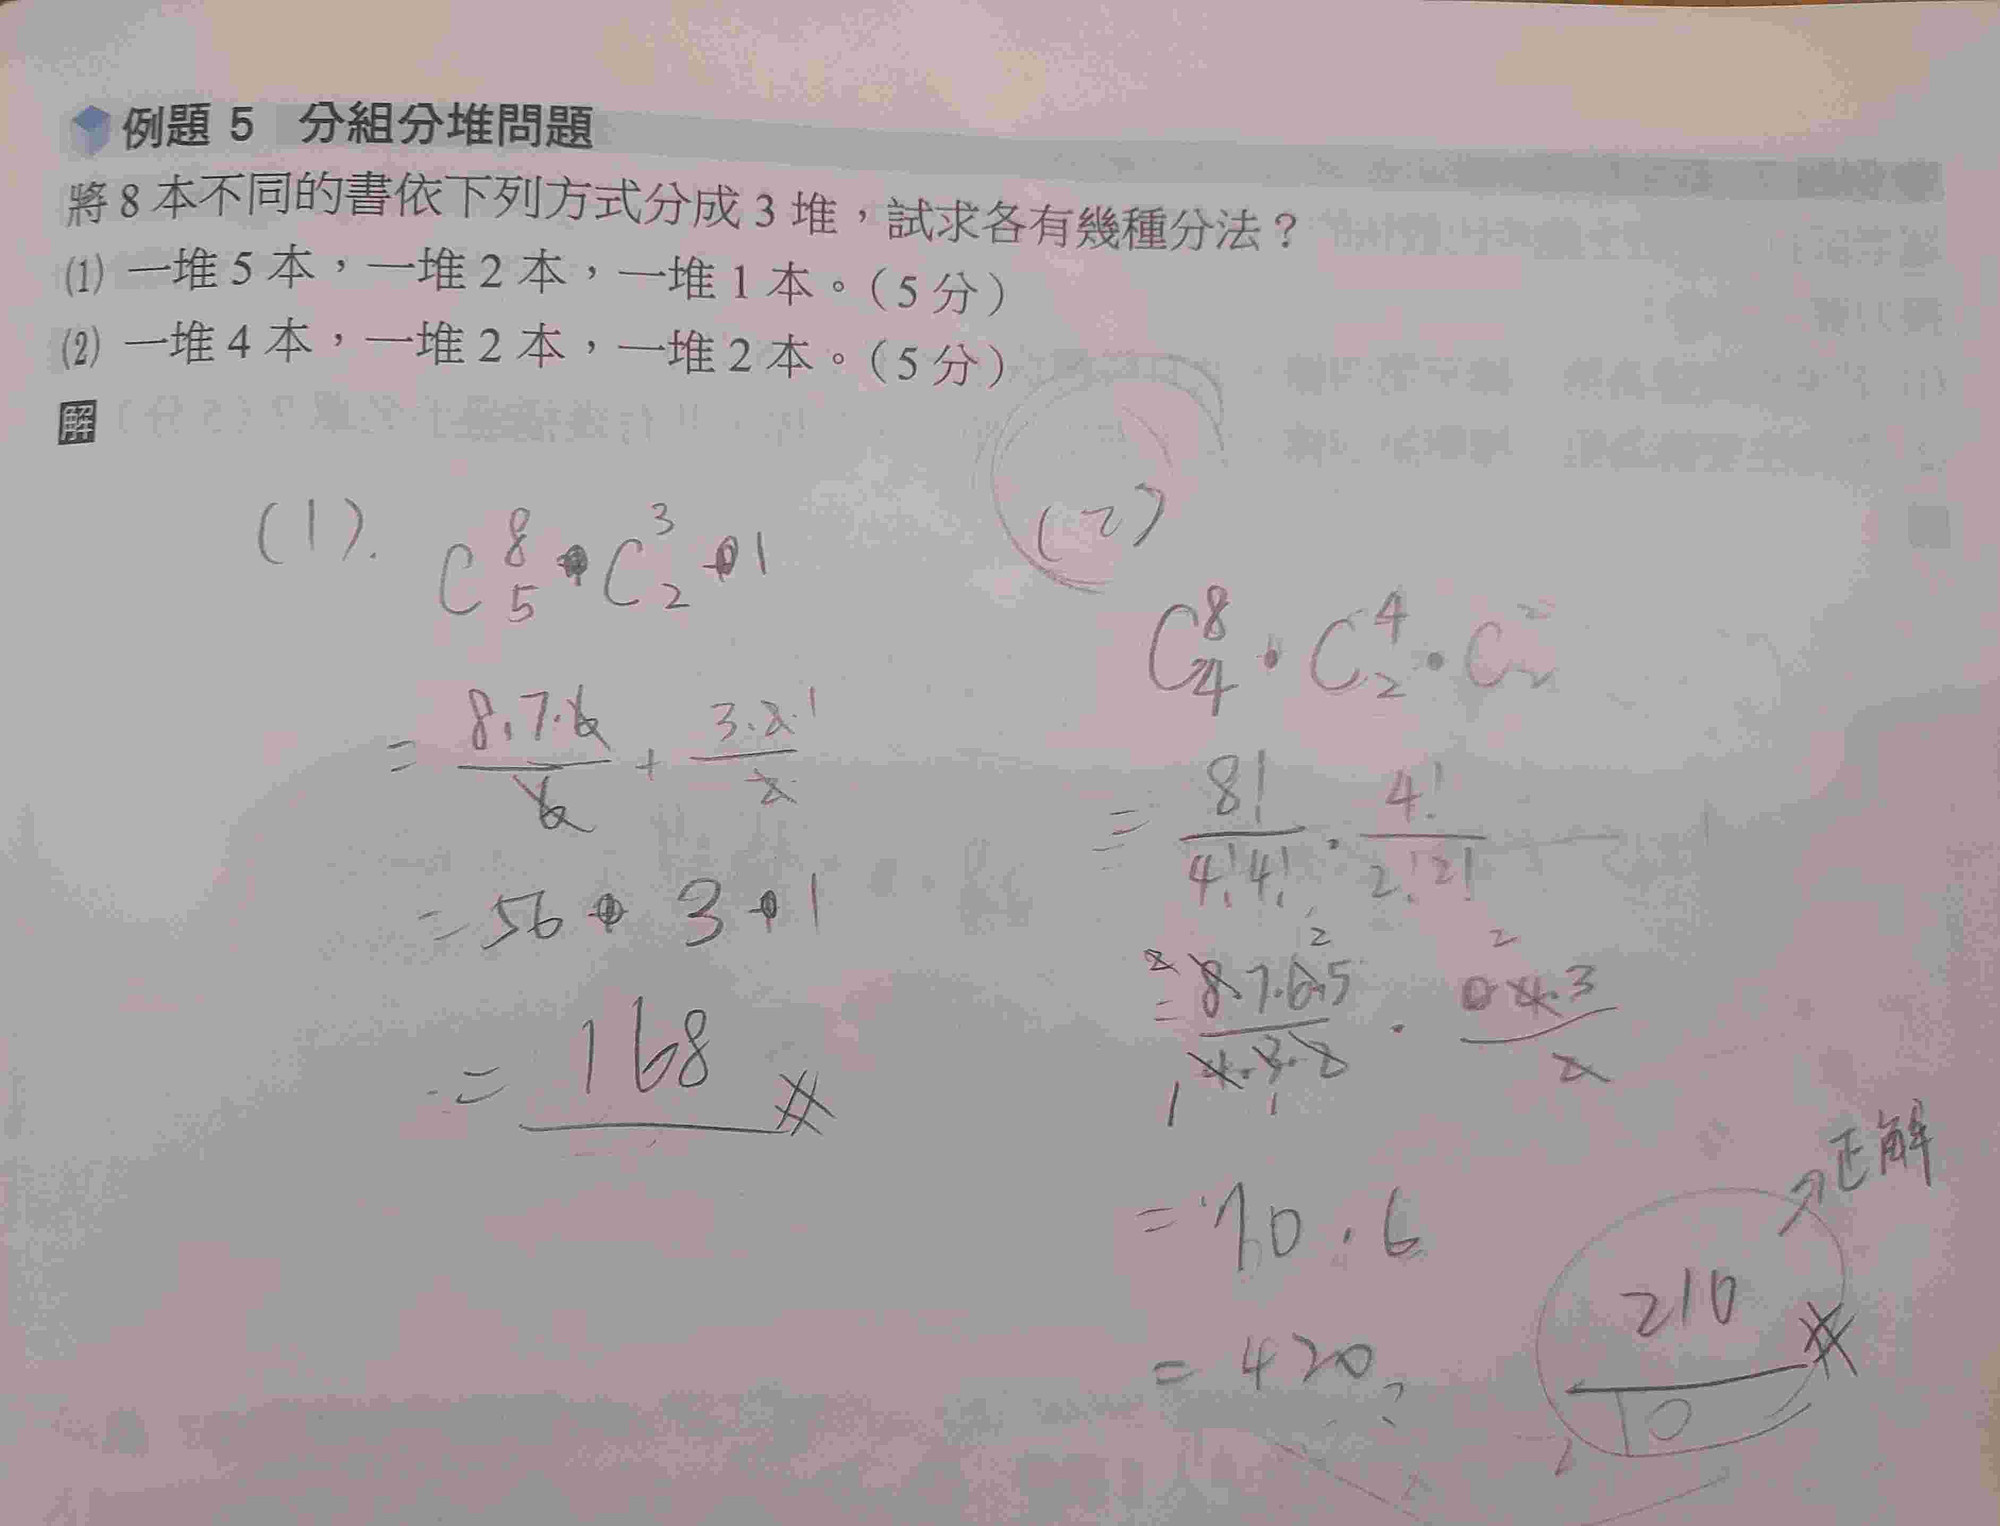 例題 5 分組分堆問題
將 8 本不同的書依下列方式分成 3 堆,試求各有幾種分法?
(1) 一堆 5 本,一堆 2 本,一堆 1 本。(5 分)
(2) 一堆 4 本,一堆 2 本,一堆 2 本。(5 分)
解
(1). C⁸₅ · C³₂ · 1
= 8.7.6/6 + 3.2.1/2
= 56 · 3 · 1
= 168
(2)
C⁸₄ · C⁴₂ · C²₂
= 8!/4!4! · 4!/2!2!
= 8.7.6.5/4.3.2 · 4.3/2
= 70 . 6
= 420 ?
正解
210